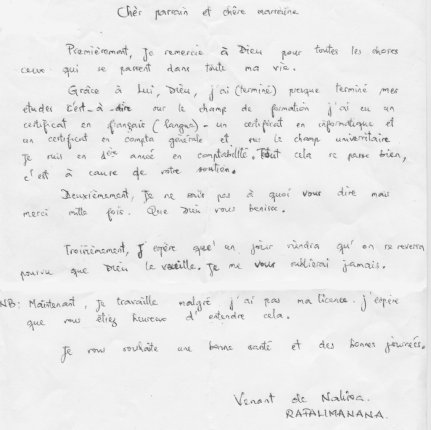 Chèr parrain et chère marraine
Premièrement, Je remercie à Dieu pour toutes les choses
ceux qui se passent dans toute ma vie.
Grâce à Lui, Dieu, j'ai (terminé) presque terminé mes
études c'est-à-dire sur le champ de formation j'ai eu un
certificat en français (langue) - un certificat en informatique et
un certificat en compta générale et sur le champ universitaire
Je suis en 4ème année en comptabilité. Tout cela se passe bien,
c'est à cause de votre soutien.
Deuxièmement, Je ne sais pas à quoi vous dire mais
merci mille fois. Que Dieu vous benisse.
Troisièmement, J'espère que un jour viendra qu'on se reverra
pourvu que Dieu le veuille. Je me vous oublierai jamais.
NB: Maintenant, je travaille malgré j'ai pas ma licence. j'espère
que vous êtiez heureux d'entendre cela.
Je vous souhaite une bonne santé et des bonnes journées.
Venant de
RAFALIMANANA.